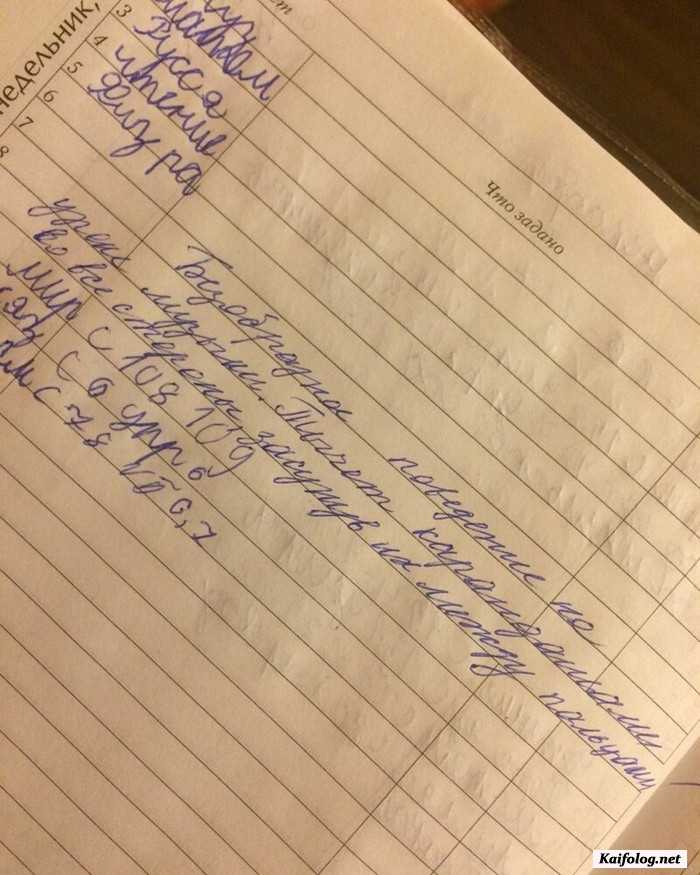 недельник,
Что задано
3 матем
4 Русся
5 чтение
6 Физ ра
7
8
Безобразное поведение на
уроке музыки. Тычет карандашами
во все стороны, засунув их между пальцами
мир с 108 109
с 6 упр 6
с 78 № 6, 7
Kaifolog.net